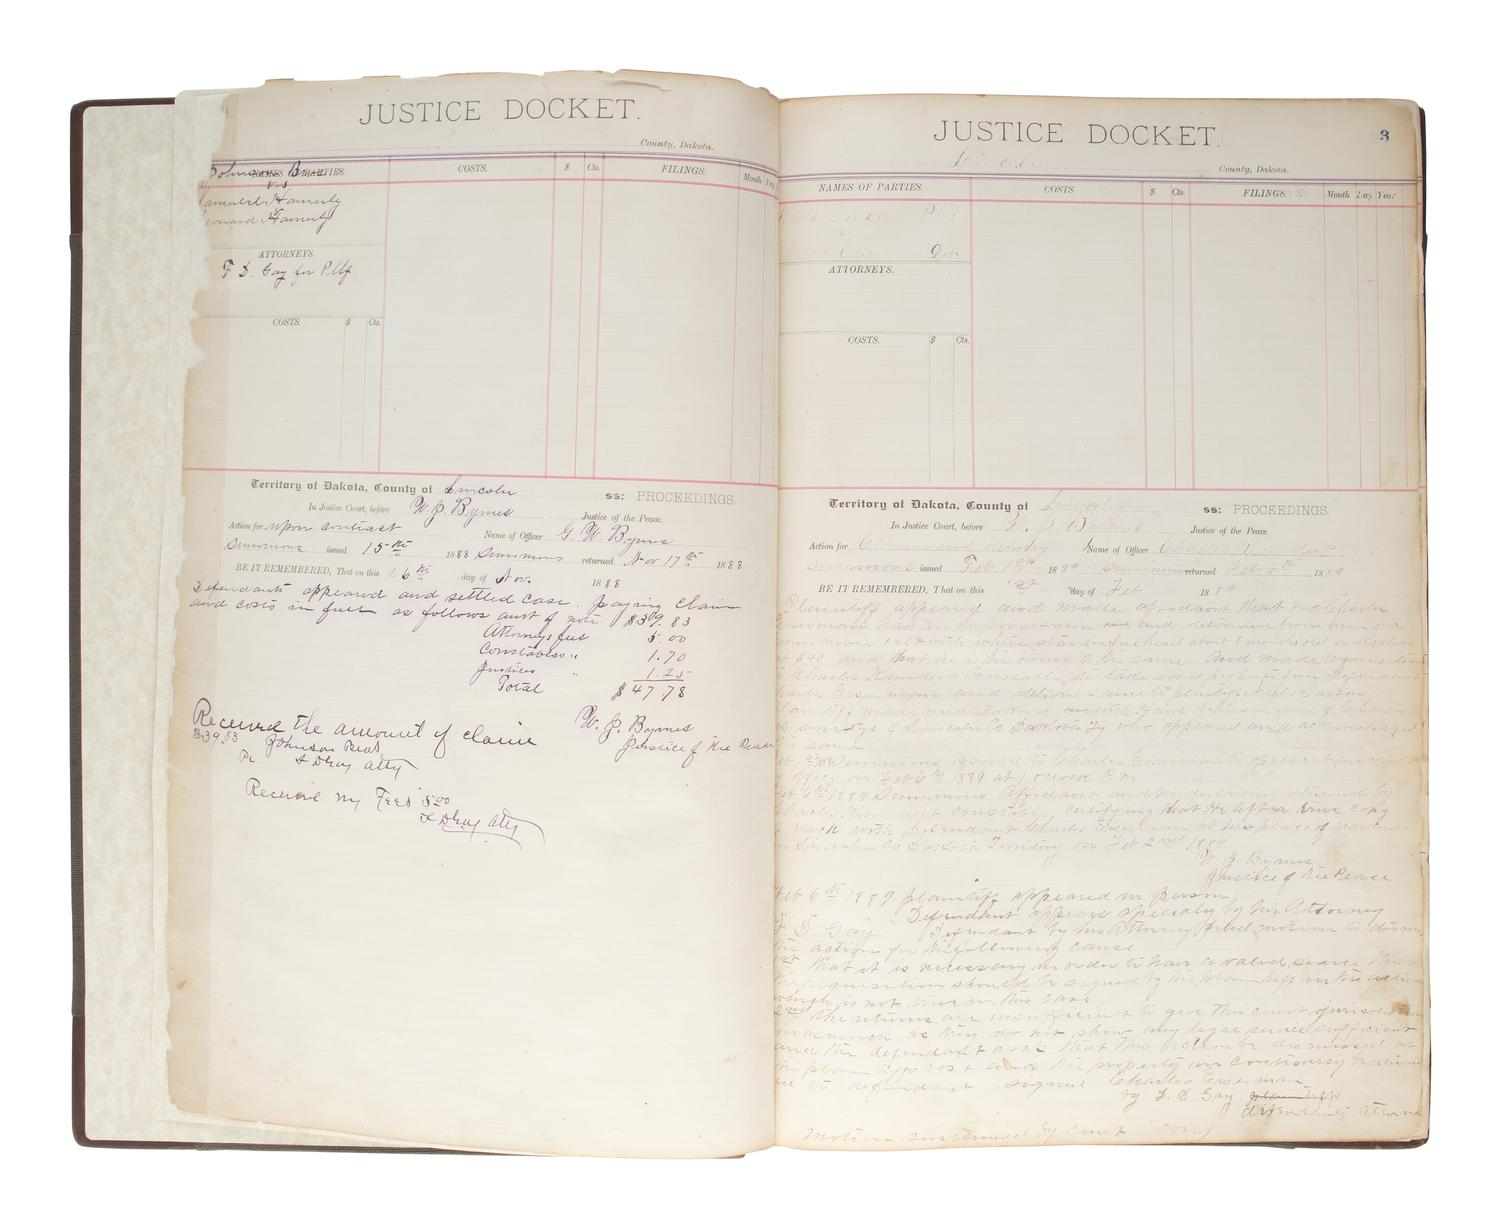 JUSTICE DOCKET.
County, Dakota.
NAMES OF PARTIES.
COSTS.
$
Cts.
FILINGS.
Month
Day
Johnson Bros
vs
Hamerly
Leonard Hamerly
ATTORNEYS.
F. D. Gay for Pltf.
COSTS.
$
Cts.
Territory of Dakota, County of Lincoln ss: PROCEEDINGS.
In Justice Court, before W. J. Byrnes Justice of the Peace.
Action for upon contract Name of Officer G. W. Byrnes
summons issued 15th 1888 summons returned Nov 17th 1888
BE IT REMEMBERED, That on this 6th day of Nov. 1888
Defendants appeared and settled case. paying claim
and costs in full as follows amt of note $39.83
Attorneys fees 5.00
Constables " 1.70
Justices " 1.25
Total $47.78
W. J. Byrnes
Justice of the Peace
Received the amount of claim
$39.83 Johnson Bros
Pr F D Gay Atty
Received my Fees 5.00
F D Gay Atty
JUSTICE DOCKET.
3
County, Dakota.
NAMES OF PARTIES
COSTS
$
Cts.
FILINGS.
Month
Day
Year
Larson Pltf
vs
Eiserman Def.
ATTORNEYS.
COSTS.
$
Cts.
Territory of Dakota, County of Lincoln ss: PROCEEDINGS.
In Justice Court, before W. J. Byrnes Justice of the Peace.
Action for Claim and delivery Name of Officer Charles
summons issued Feb 1st 1889 summons returned Feb 1889
BE IT REMEMBERED, That on this 1st day of Feb 1889
Plaintiff appeared and made affidavit that one Charles
Eiserman has in his possession and from him one
mare colt with white star in forehead about 8 months old
at $40. and that he is the owner of the same. And made requisition
Charles Constable to take said property from Defendant
Charles Eiserman and deliver same to Plaintiff Larson
Plaintiff made undertaking with Johnson and
as suretys of Lincoln Co Dakota Ty who appeared and acknowledged
the same
Summons issued to Charles Eiserman to appear before me at my
office on Feb 6th 1889 at 1 oclock P.m
Feb 6th 1889 Summons Affidavit and returned by
Charles constable certifying that He left a true copy
of each with Defendant Charles Eiserman at his place of residence
in Lincoln Co Dakota Territory on Feb 2nd 1889
W. J. Byrnes
Justice of the Peace
Feb 6th 1889 plaintiff appeared in person
Defendant appears specialy by his Attorney
F. D. Gay. Defendant by his Attorney filed motion to dismiss
the action for the following cause
1st That it is necessary in order to have a valid service that
the requisition should be signed by the plaintiff in the action
which is not true in this case
2nd the returns are insufficient to give this court jurisdiction
inasmuch as they do not show any legal service sufficient
and the defendant asks that this action be dismissed at
the plaintiffs cost and the property in controversy be
to defendant signed Charles Eiserman
by F. D. Gay
defendants Attorney
Motion sustained by court (over)